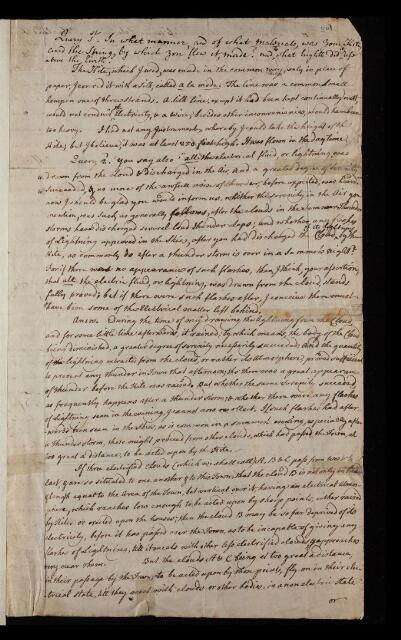 Query 1st. In what manner, and of what Materials, was your Kite,
and the String, by which you flew it, made? and what height did it fly
above the Earth?
The Kite, which I used, was made in the common way, only in place of
paper, I covered it with a silk, called a la mode. The line was a common small
hempen one of three strands. A silk line, except it had been kept continually wet,
would not conduct the electricity, & a wire, besides other inconveniences, would have been
too heavy. I had not any Instrument, whereby I could take the height of the
Kite; but I believe, it was at least 250 feet high. It was flown in the day time.
Query 2. you say also: all the electrical fluid, or lightning, was
drawn from the Cloud & discharged in the Air, and a greater degree of serenity
succeeded, & no more of the awful noise of thunder, before expected, was heard
now I should be glad you would inform us, whether this serenity in the Air you
mention, was such as generally follows, after the clouds in the Summer Thunder
storms have discharged several loud thunder claps; and whether any flashes
of Lightning appeared in the Skies, after you had discharged the Cloud, by the
Kite, as commonly do after a thunder storm is over in a Summer's night?
For if there were no appearances of such flashes, then I think, your assertion,
that all the electric fluid, or lightning, was drawn from the cloud, stands
fully proved; but if there were such flashes after, I conceive there must
have been some of the Electrical matter left behind.
Answ. During the time of my drawing the lightning from the Cloud,
and for some little time afterwards, it rained, by which means the body of the Cloud
being diminished, a greater degree of serenity necessarily succeeded. And the quantity
of the lightning extracted from the cloud, or rather its Atmosphere, proved sufficient
to prevent any thunder in Town that afternoon, tho there was a great appearance
of thunder before the Kite was raised. But whether the same Serenity succeeded
as frequently happens after a thunder storm; & whether there were any flashes
of Lightning seen in the evening, I cannot now recollect. If such flashes had after-
wards been seen in the Skies, as is common in a summer's evening, especially after
a thunder storm, these might proceed from other clouds, which had passed the Town, at
too great a distance, to be acted upon by the Kite.
If three electrified clouds (which we shall call) A. B & C pass from west to
east, & are so situated to one another & to this Town, that the cloud B is not only in
length equal to the Area of the Town, but vertical over it, having an electrical Atmos-
phere, which reaches low enough to be acted upon by sharp points, either raised
by Kites or erected upon the houses; then the cloud B may be so far deprived of its
electricity, before it has passed over the Town, as to be incapable of giving any
flashes of Lightning, till it meets with other less electrified clouds or approaches
very near them. But the clouds A & C being at too great a distance,
in their passage by the Town, to be acted upon by these points, fly on in their elec-
trical state, till they meet with clouds or other bodies, in a non electric state
or